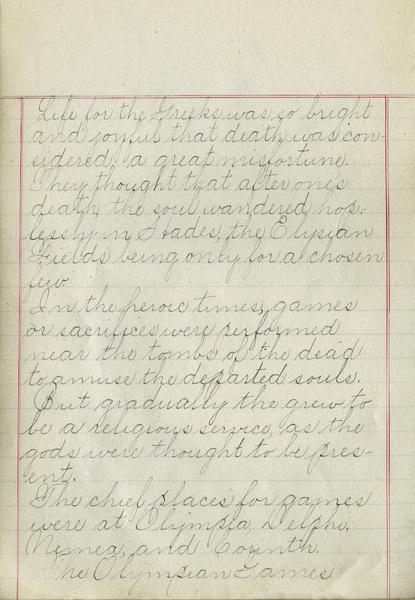 Life for the Greeks was so bright
and joyful that death was con-
sidered, a great misfortune.
They thought that after one's
death the soul wandered hop-
lessly in Hades, the Elysian
Fields being only for a chosen
few
In the heroic times, games
or sacrifices were performed
near the tombs of the dead
to amuse the departed souls.
But gradually the grew to
be a religious service, as the
gods were thought to be pres-
ent.
The chief places for games
were at Olympia, Delphi,
Nemea, and Corinth.
The Olympian Games